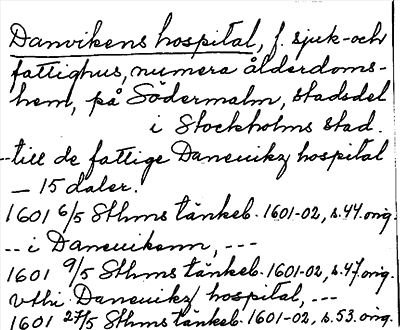 Danvikens hospital, f. sjuk- och
fattighus, numera ålderdoms-
hem, på Södermalm, stadsdel
i Stockholms stad.
-- till de fattige Daneuikz hospital
— 15 daler.
1601 6/5 Sthms tänkeb. 1601-02, s. 44. orig.
-- i Daneuikenn, ---
1601 9/5 Sthms tänkeb. 1601-02, s. 47. orig.
vthi Daneuikz hospital, ---
1601 27/5 Sthms tänkeb. 1601-02, s. 53. orig.